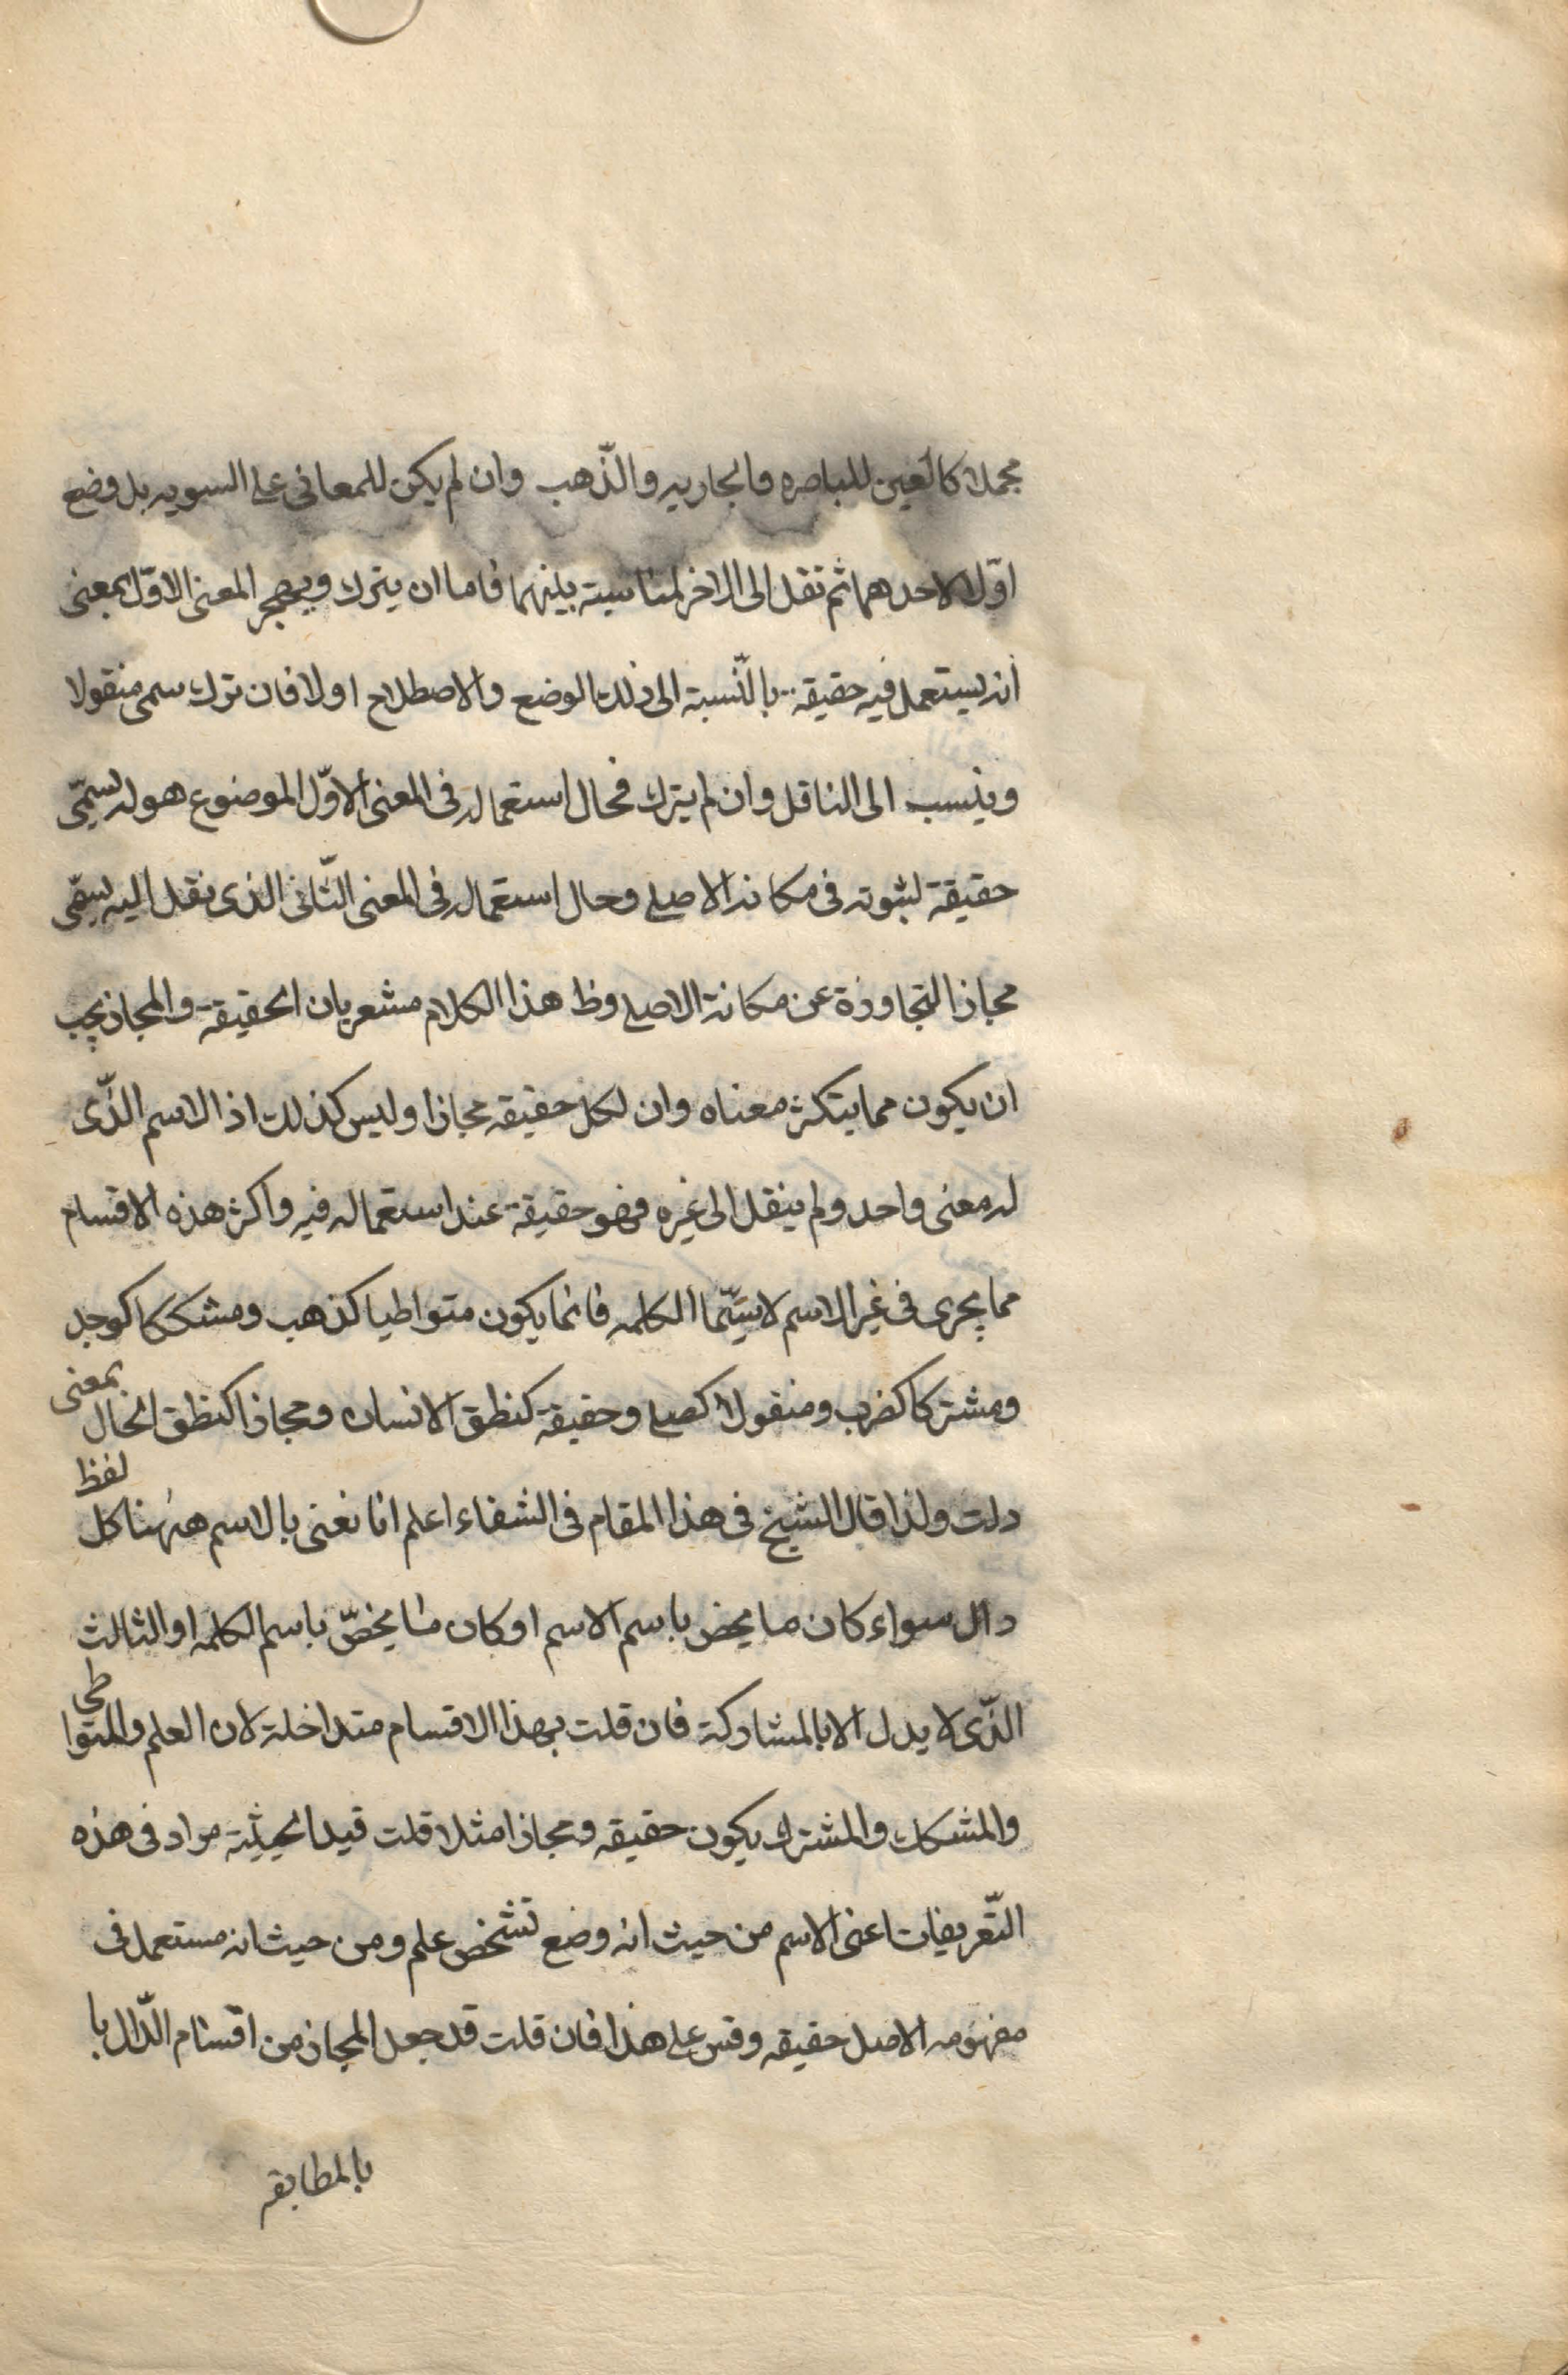 مجملا كالعين للباصره والجاريه والذّهب وان لم يكن للمعانى على السويه بل وضع
اوّلا لاحدهما ثم نقل الى الاخر لمناسبته بينهما فاما ان يترك ويهجر المعنى الاوّل بمعنى
انه يستعمل فيه حقيقة بالنّسبة الى ذلك الوضع والاصطلاح اولا فان ترك سمى منقولا
وينسب الى الناقل وان لم يترك فحال استعماله فى المعنى الاوّل الموضوع هو له يسمّى
حقيقة لثبوته فى مكانه الاصلى وحال استعماله فى المعنى الثّانى الذى نقل اليه يسمّى
مجازا لتجاوزة عن مكانة الاصلى وظ هذا الكلام مشعر بان الحقيقة والمجاز يجب
ان يكون مما يتكثر معناه وان لكل حقيقه مجازا وليس كذلك اذ الاسم الذّى
له معنى واحد ولم ينقل الى غيره فهو حقيقة عند استعماله فيه واكثر هذه الاقسام
مما يجرى فى غير الاسم لاسيّما الكلمه فانما يكون متواطيا كذهب ومشككا كوجد
ومشتركا كضرب ومنقولا كصلى وحقيقة كنطق الانسان ومجازا كنطق الحال بمعنى
دلت ولذا قال الشيخ فى هذا المقام فى الشفاء اعلم انا نعنى بالاسم ههنا كل لفظ
دال سواء كان ما يخص باسم الاسم او كان ما يخصّ باسم الكلمه او الثالث
الذّى لا يدل الا بالمشاركة فان قلت بهذا الاقسام متداخلة لان العلم والمتواطى
والمشكك والمشترك يكون حقيقه ومجازا مثلا قلت قيد الحيثية مراد فى هذه
التّعريفات اعنى الاسم من حيث انه وضع تشخص علم ومن حيث انه مستعمل فى
مفهومه الاصل حقيقه وقس على هذا فان قلت قد جعل المجاز من اقسام الدّال با
بالمطابقه